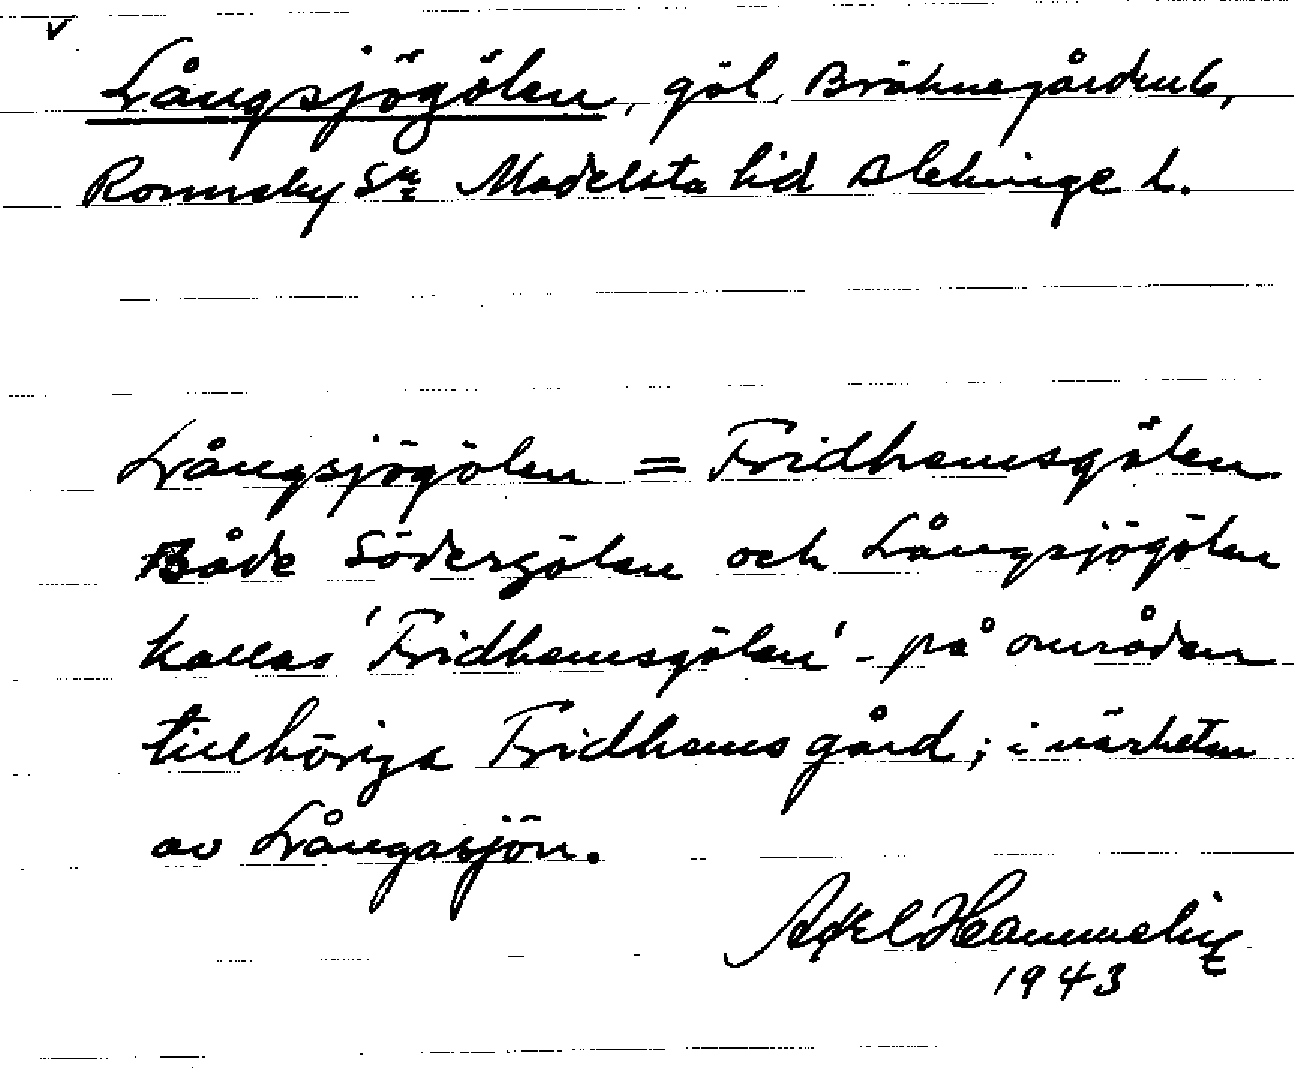 Långsjögölen, göl, Bräknegården 6,
Ronneby Sn Medelsta hd Blekinge l.
Långsjögölen = Fridhemsgölen
Både Södergölen och Långsjögölen
kallas 'Fridhemsgölen' - på områden
tillhöriga Fridhems gård; i närheten
av Långasjön.
Axel
1943